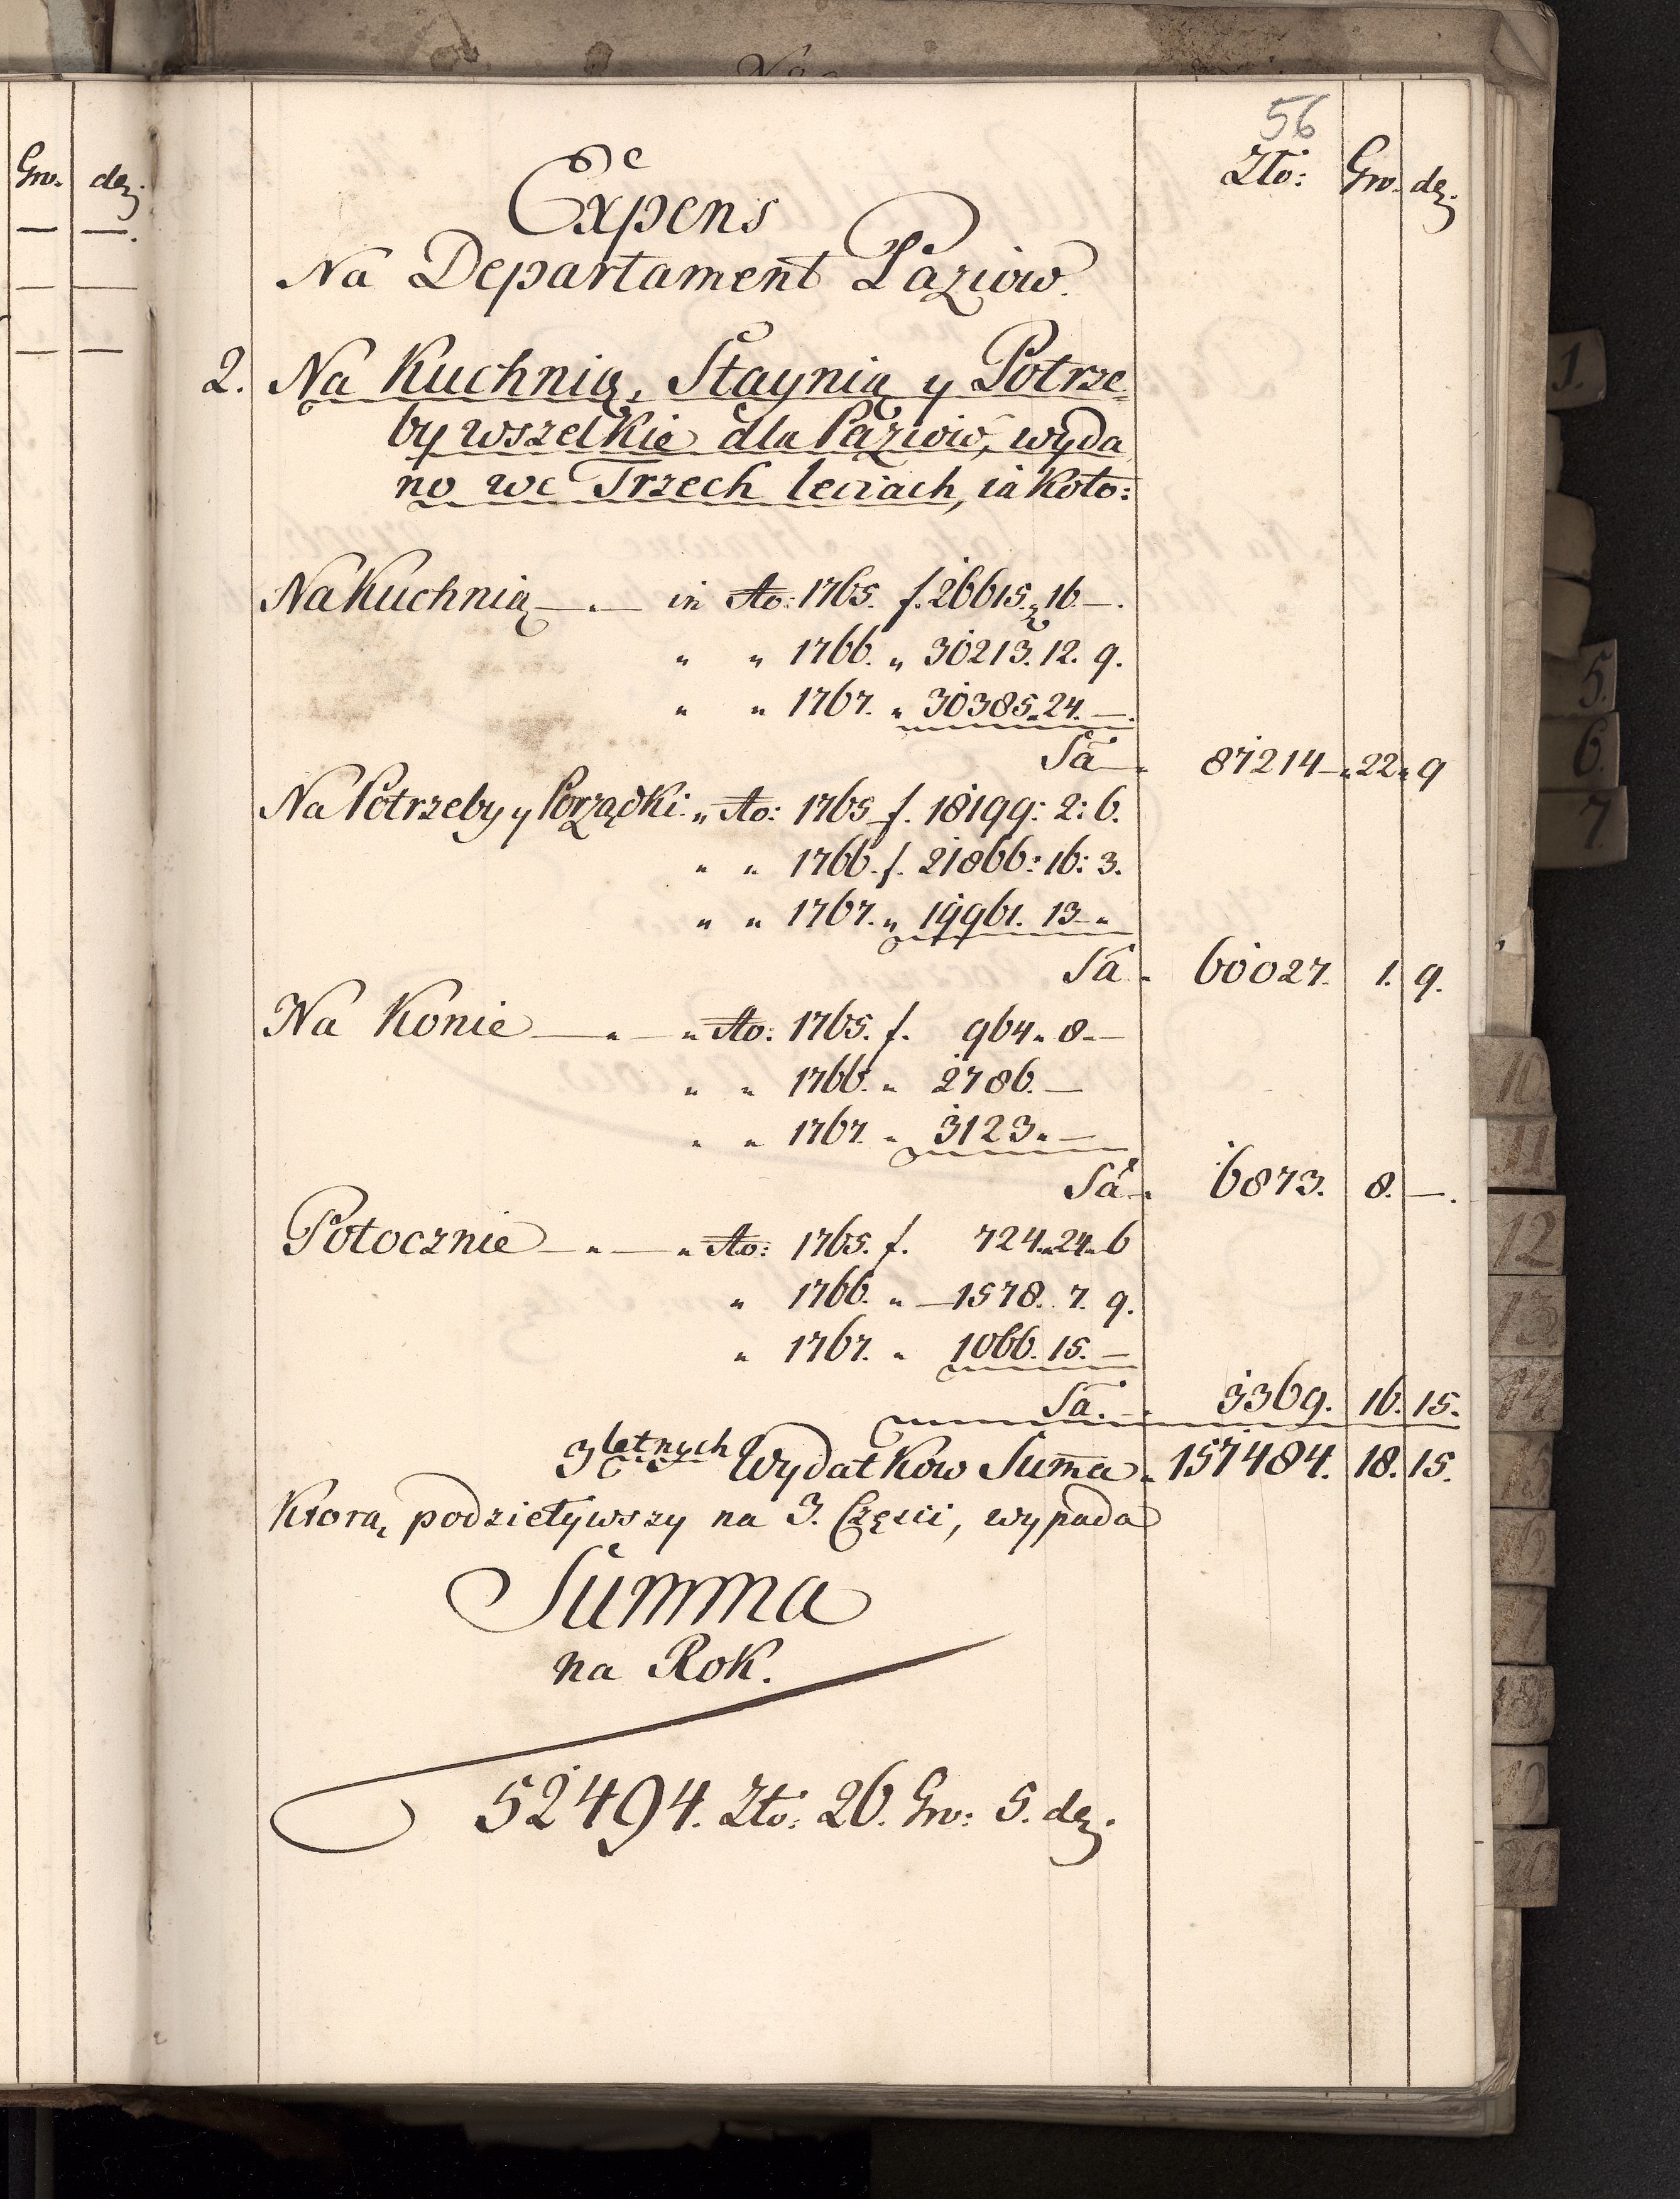 56
Gro. dez.
Zto: Gro. dez.
Expens
Na Departament Paziow.
2. Na Kuchnią, Staynią y Potrze=
by wszelkie dla Paziow, wyda
no we Trzech leciach, iakoto:
Na Kuchnią — . — in Ao: 1765. f. 26615 „ 16 — .
„ „ 1766. „ 30213. 12. 9.
„ „ 1767. „ 30385 „ 24. — .
Sa — . 87214 — „ 22 „ 9
Na Potrzeby y Porządki „ Ao: 1765 f. 18199: 2: 6.
„ „ 1766. f. 21866: 16: 3.
„ „ 1767. „ 19961. 13 — „
Sa . 60027. 1. 9.
Na Konie — „ — „ Ao: 1765. f. 964 „ 8 „ —
„ „ 1766. „ 2786. —
„ „ 1767. „ 3123 „ —
Sa — . 6873. 8. — .
Potocznie — „ — „ Ao: 1765. f. 724 „ 24 „ 6
„ 1766. „ — 1578. 7. 9.
„ 1767. „ 1066. 15. —
Sa. — . 3369. 16. 15.
3 letnych Wydatkow Suma „ 157484. 18. 15.
Ktorą podzieływszy na 3. Części, wypada
Summa
na Rok.
52494. Zto: 26. Gro: 5. dez.
1.
5.
6.
7.
10.
11
12
13
14
17
18.
19
20